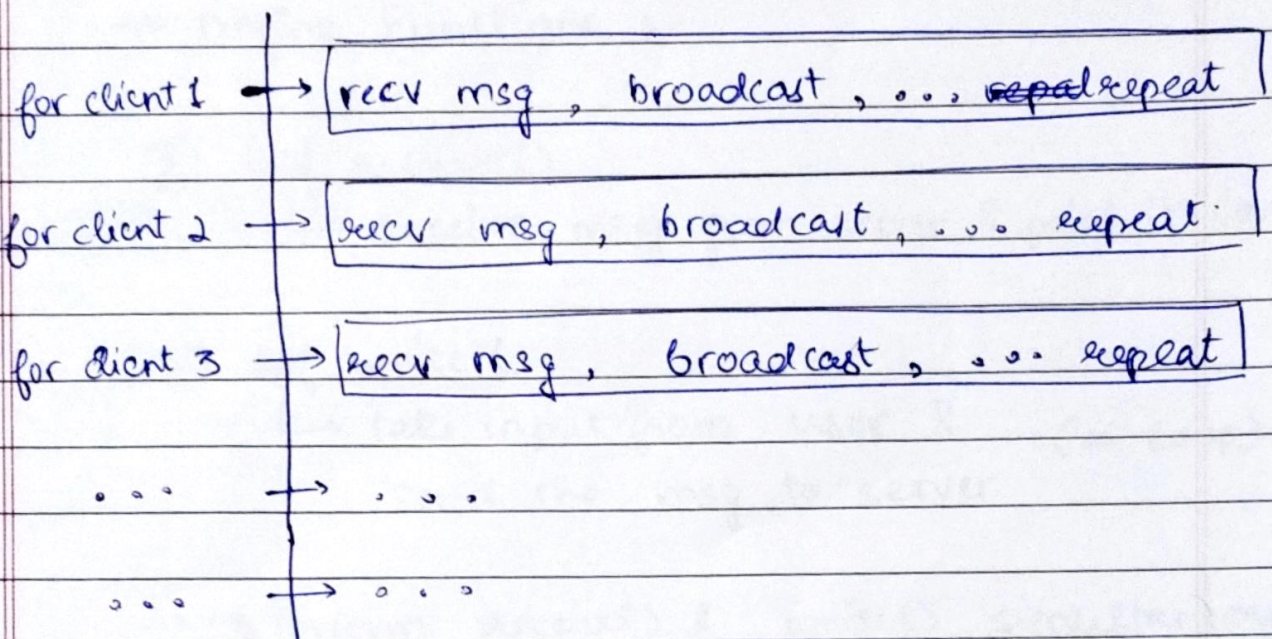 for client 1 → recv msg, broadcast, ... repeat
for client 2 → recv msg, broadcast, ... repeat
for client 3 → recv msg, broadcast, ... repeat
... → ...
... → ...